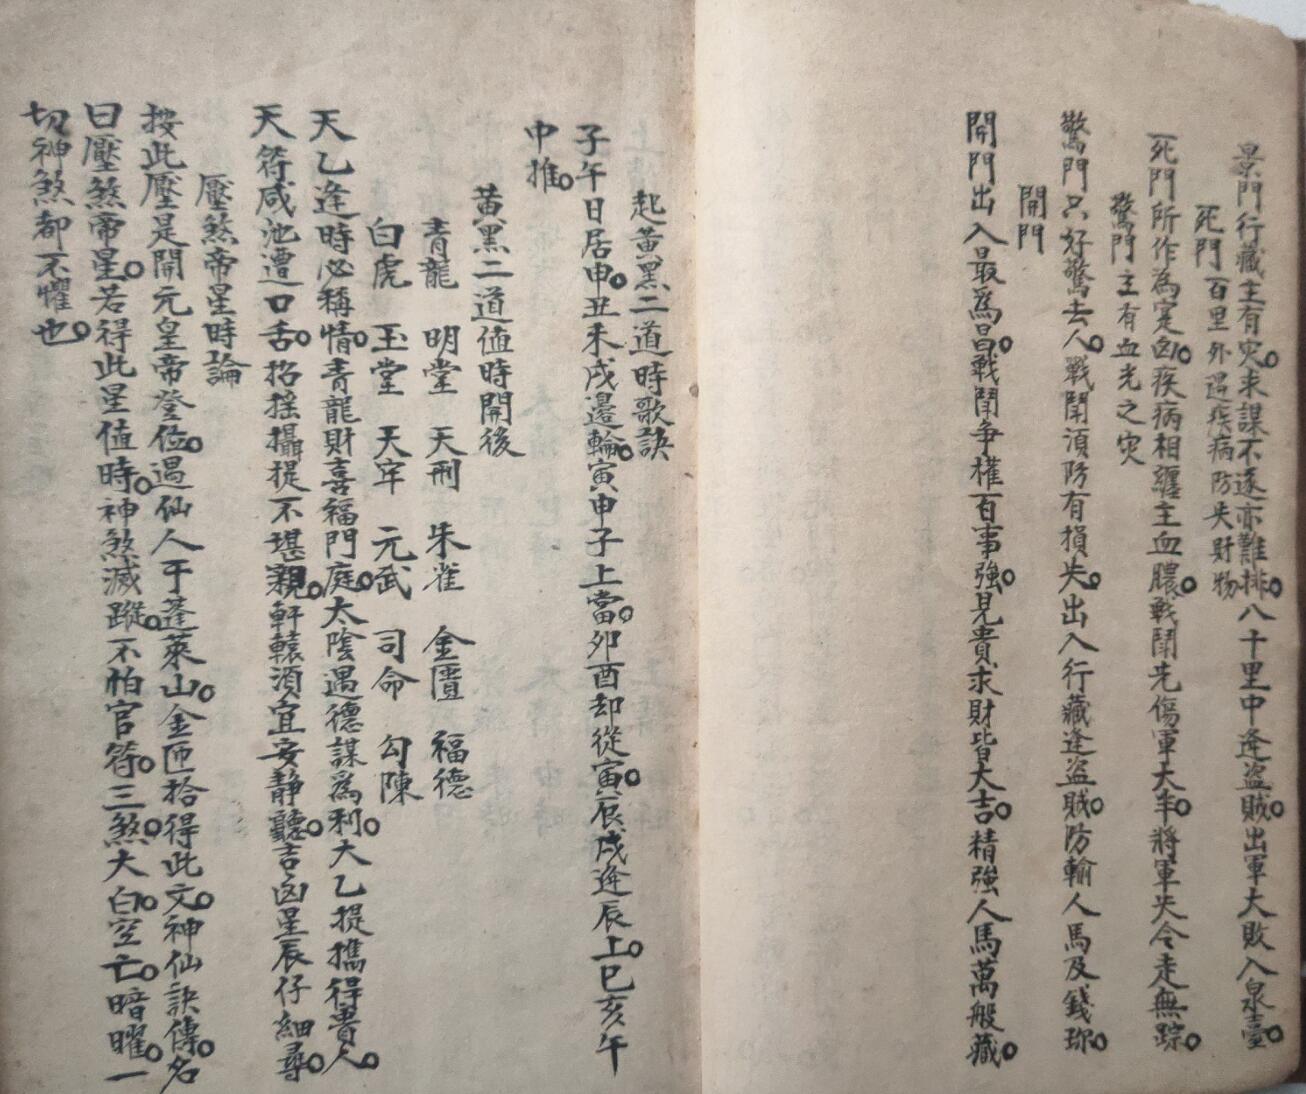 景門行藏主有灾。求謀不遂亦難排。八十里中逢盗賊。出軍大敗入泉臺。
死門 百里外遇疾病防失財物
死門所作為寔凶。疾病相纏主血膿。戰鬭先傷軍大卒。將軍失令走無踪。
驚門 主有血光之灾
驚門只好驚去人。戰鬭須防有損失。出入行藏逢盗賊。防輸人馬及錢珎。
開門
開門出入最為昌。戰鬭争權百事強。見貴求財皆大吉。精強人馬萬般藏。
起黄黑二道時歌訣
子午日居申。丑未戌邉輪。寅申子上當。卯酉却從寅。辰戌逄辰上。巳亥午
中推。
黄黑二道值時開後
青龍 明堂 天刑 朱雀 金匱 福德
白虎 玉堂 天牢 元武 司命 勾陳
天乙逢時必稱情。青龍財喜福門庭。太陰遇德謀為利。大乙提攜得貴人。
天符咸池遭口舌。招摇攝提不堪親。軒轅須宜安静聽。吉凶星辰仔細尋。
壓煞帝星時論
按此壓是開元皇帝登位。遇仙人于蓬萊山。金匣拾得此文。神仙訣傳。名
曰壓煞帝星。若得此星值時。神煞滅蹤。不怕官符。三煞。大白。空亡。暗曜。一
切神煞都不懼也。